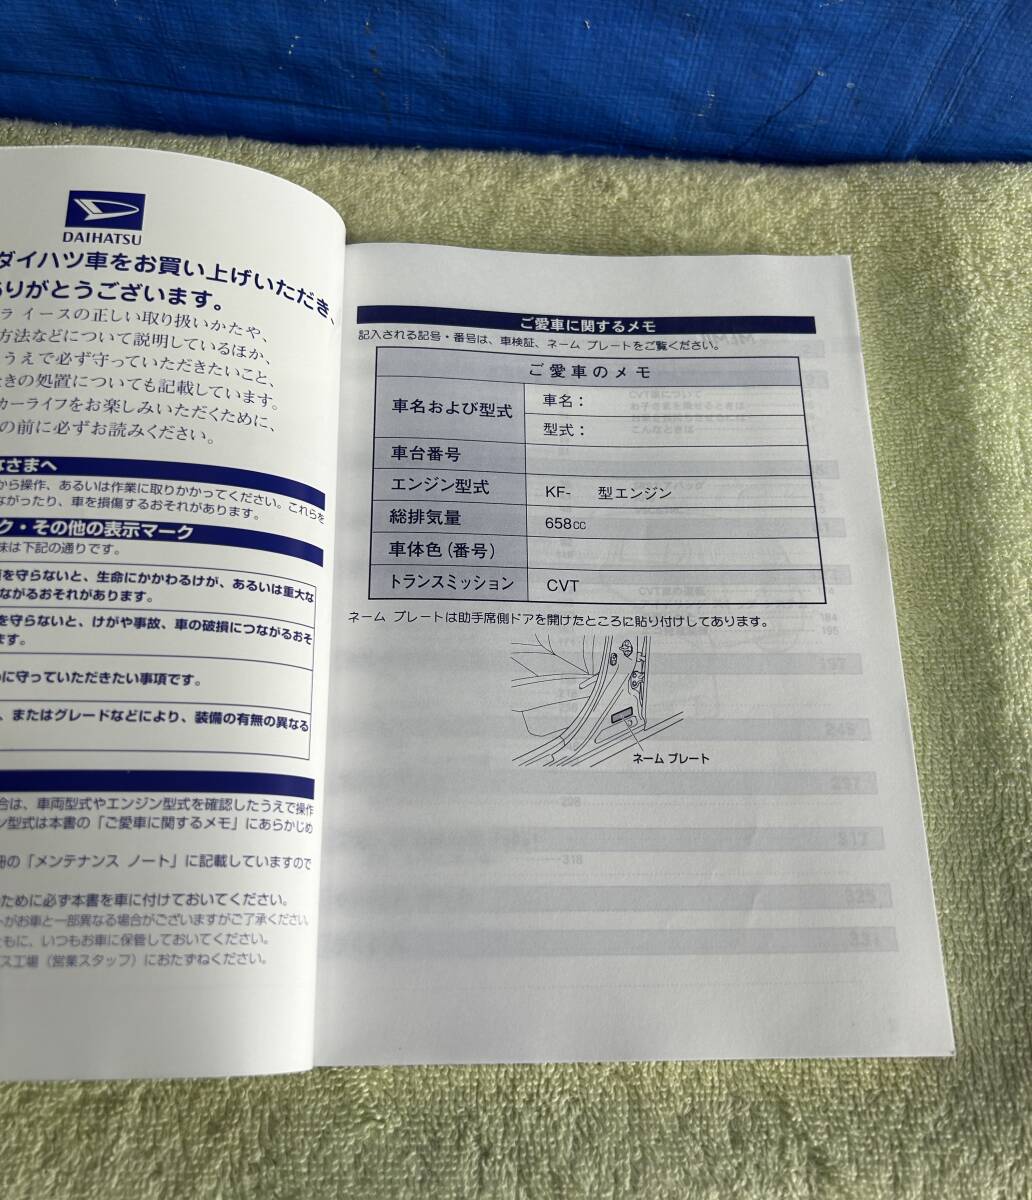 DAIHATSU
ダイハツ車をお買い上げいただき、
ありがとうございます。
ラ イースの正しい取り扱いかたや、
方法などについて説明しているほか、
うえで必ず守っていただきたいこと、
ときの処置についても記載しています。
カーライフをお楽しみいただくために、
の前に必ずお読みください。
なさまへ
から操作、あるいは作業に取りかかってください。これらを
ながったり、車を損傷するおそれがあります。
ク・その他の表示マーク
味は下記の通りです。
を守らないと、生命にかかわるけが、あるいは重大な
ながるおそれがあります。
を守らないと、けがや事故、車の破損につながるおそ
ます。
に守っていただきたい事項です。
、またはグレードなどにより、装備の有無の異なる
合は、車両型式やエンジン型式を確認したうえで操作
ン型式は本書の「ご愛車に関するメモ」にあらかじめ
冊の「メンテナンス ノート」に記載していますので
ために必ず本書を車に付けておいてください。
トがお車と一部異なる場合がございますがご了承ください
ともに、いつもお車に保管しておいてください。
ス工場（営業スタッフ）におたずねください。
ご愛車に関するメモ
記入される記号・番号は、車検証、ネーム プレートをご覧ください。
ご愛車のメモ
車名および型式
車名：
型式：
車台番号
エンジン型式
KF-　型エンジン
総排気量
658cc
車体色（番号）
トランスミッション
CVT
ネーム プレートは助手席側ドアを開けたところに貼り付けしてあります。
ネーム プレート